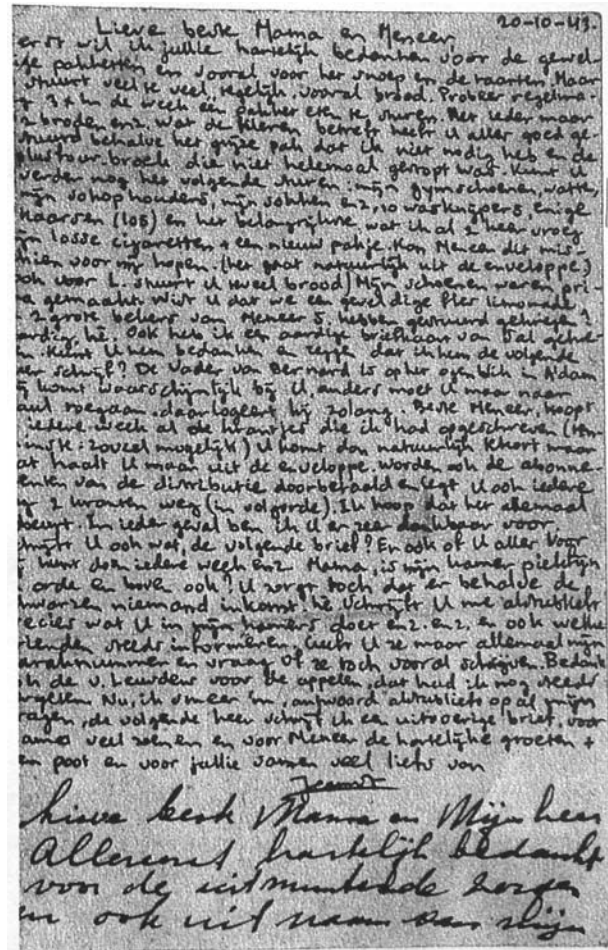 20-10-43.
Lieve beste Mama en Meneer,
erst wil ik jullie hartelijk bedanken voor de gewel-
ige pakketten en vooral voor het snoep en de taarten. Maar
stuurt veel te veel tegelijk, vooral brood. Probeer regelma-
3 x in de week een pakket eten te sturen. Met ieder maar
2 broden enz. Wat de kleren betreft heeft U alles goed ge-
stuurd behalve het grijze pak dat ik niet nodig heb en de
plusfour-broek die niet helemaal gestopt was. Kunt U
verder nog het volgende sturen: mijn gymschoenen, watten,
mijn sokophouders, mijn sokken enz, 10 wasknijpers, enige
kaarsen (los) en het belangrijkste, wat ik al 2 keer vroeg
ijn losse cigaretten + een nieuw pakje. Kon Meneer dit mis-
hien voor mij kopen. (het gaat natuurlijk uit de enveloppe.)
ook voor L. stuurt U teveel brood) Mijn schoenen waren pri-
ma gemaakt. Wist U dat we een geweldige fles limonade
2 grote bekers van Meneer S. hebben gestuurd gekregen?
aardig, hè. Ook heb ik een aardige briefkaart van Val gekre-
en. Kunt U hem bedanken en zeggen dat ik hem de volgende
eer schrijf? De Vader van Bernard is op het ogenblik in A'dam
ij komt waarschijnlijk bij U, anders moet U maar naar
aul toegaan. daar logeert hij zolang. Beste Meneer, koopt
iedere week al de krantjes die ik had opgeschreven
zoveel mogelijk) U komt dan natuurlijk tekort maar
at haalt U maar uit de enveloppe. Worden ook de abonne-
enten van de distributie doorbetaald en legt U ook iedere
2 kranten weg (in volgorde). Ik hoop dat het allemaal
gebeurt. In ieder geval ben ik U er zeer dankbaar voor.
schrijft U ook wat, de volgende brief? En ook of U alles voor
kunt doen iedere week enz. Mama, is mijn kamer piekfijn
orde en boven ook? U zorgt toch dat er behalve de
niemand inkomt, hè. Schrijft U me alstublieft
recies wat U in mijn kamers doet enz. enz. en ook welke
rienden steeds informeren, geeft U ze maar allemaal mijn
baraknummer en vraag of ze toch vooral schrijven. Bedank
ook de v. Leurdens voor de appelen, dat had ik nog steeds
vergeten. Nu, ik smeer 'm, antwoord alstublieft op al mijn
ragen, de volgende keer schrijf ik een uitvoerige brief, voor
ama veel zoenen en voor Meneer de hartelijke groeten +
en poot en voor jullie samen veel liefs van
Lieve beste Mama en Mijnheer
Allereerst hartelijk bedankt
voor de uitmuntende zorgen
en ook uit naam van mijn